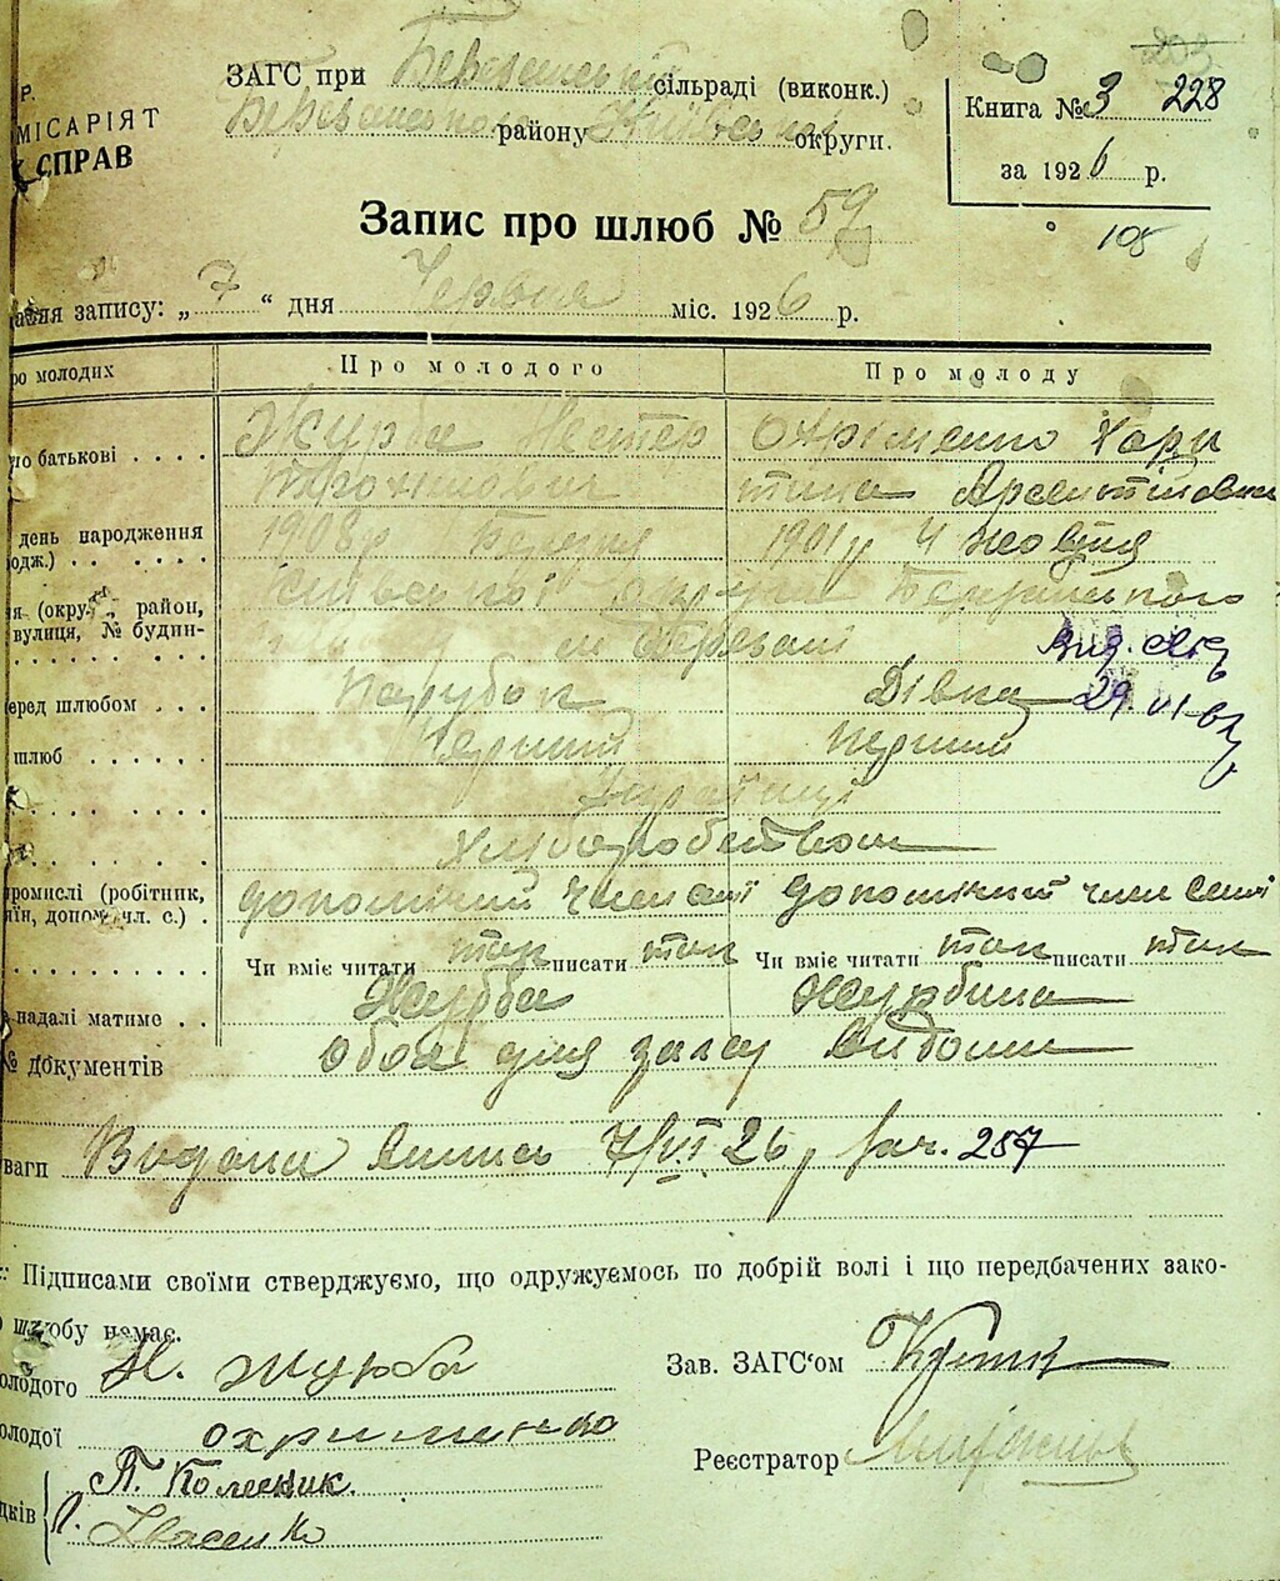 ЗАГС при Березанській сільраді (виконк.)
Березанського району Київської округи.
Р.
МІСАРІЯТ
СПРАВ
Книга № 3 228
за 1926 р.
108
Запис про шлюб № 59
запису: „7“ дня Червня міс. 1926 р.
ро молодих Про молодого Про молоду
по батькові . . . . Журба Нестер Охріменко Хари
тина
день народження
одж.) . . . . . . 1908 р Березня 1901 р 4 Жовтня
я (окру , район, Київської округи Березанського
вулиця, № будин-
. . . . . . . . . м Березані
Вид.
еред шлюбом . . . Парубок Дівка 29. VI
шлюб . . . . . . Перший Перший
. . . . . . . . . Українці
. . . . . . Хліборобством
промислі (робітник,
їн, допом. чл. с.) . допоміжний член сімї допоміжний член сімї
. . . . . . . . . . Чи вміє читати так писати так Чи вміє читати так писати так
надалі матиме . . Журба Журбина
№ документів обоє для загсу відомі
ваги Видани 7/VI 26 р 287
Підписами своїми стверджуємо, що одружуємось по добрій волі і що передбачених зако-
шлюбу немає.
олодого Н. Журба
Зав. ЗАГС‘ом
олодої охрименко
Реєстратор
П. Колесник.
дків